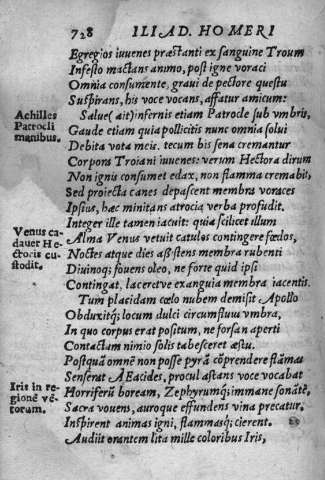 728 ILIAD. HOMERI
Egregios iuuenes præstanti ex sanguine Troum
Infesto mactans animo, post igne voraci
Omnia consumente, graui de pectore questu
Suspirans, his voce vocans, affatur amicum:
Achilles
Patrocli
manibus.
Salue (ait) infernis etiam Patrocle sub vmbris,
Gaude etiam quia pollicitis nunc omnia solui
Debita vota meis. tecum bis sena cremantur
Corpora Troiani iuuenes: verum Hectora dirum
Non ignis consumet edax, non flamma cremabit,
Sed proiecta canes depascent membra voraces
Ipsius, hæc minitans atrocia verba profudit.
Integer ille tamen iacuit: quia scilicet illum
Venus ca-
dauer He-
ctoris cu-
stodit.
Alma Venus vetuit catulos contingere fœdos,
Noctes atque dies assistens membra rubenti
Diuinoq; fouens oleo, ne forte quid ipsi
Contingat, laceretve exanguia membra iacentis.
Tum placidam cœlo nubem demisit Apollo
Obduxitq; locum dulci circumfluus vmbra,
In quo corpus erat positum, ne forsan aperti
Contactam nimio solis tabesceret æstu.
Postquã omnẽ non posse pyrã cõprendere flãmas
Senserat AEacides, procul astans voce vocabat
Iris in re-
gionẽ vẽ-
torum.
Horriferũ boream, Zephyrumq; immane sonãtẽ,
Sacra vouens, auroque effundens vina precatur.
Inspirent animas igni, flammasq; cierent.
Audiit orantem lita mille coloribus Iris,